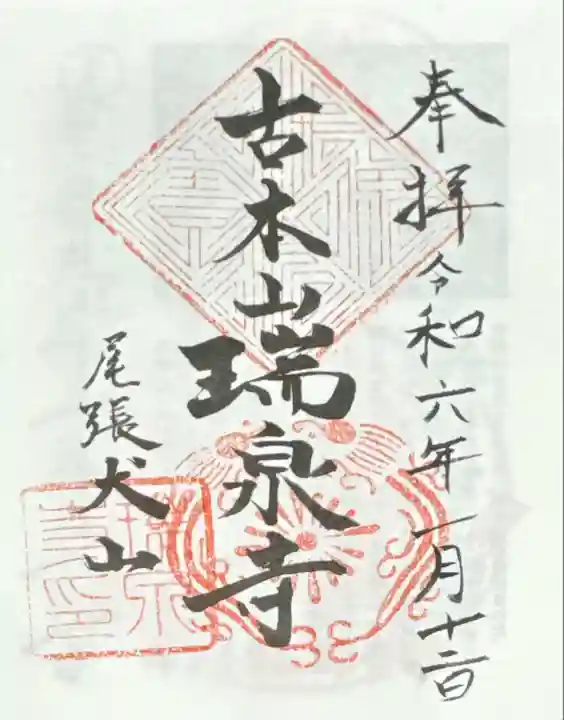 奉拝令和六年一月十二日
古本山瑞泉寺
尾張犬山